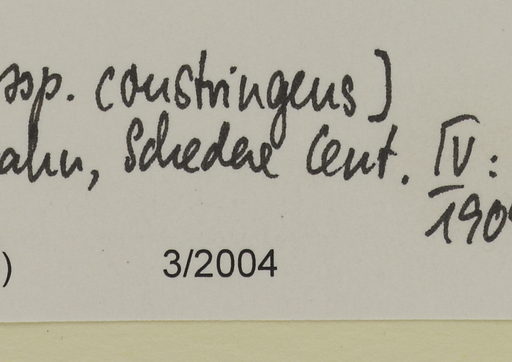 ssp. constringens]
ahn, Schedae Cent. IV:
190
) 3/2004